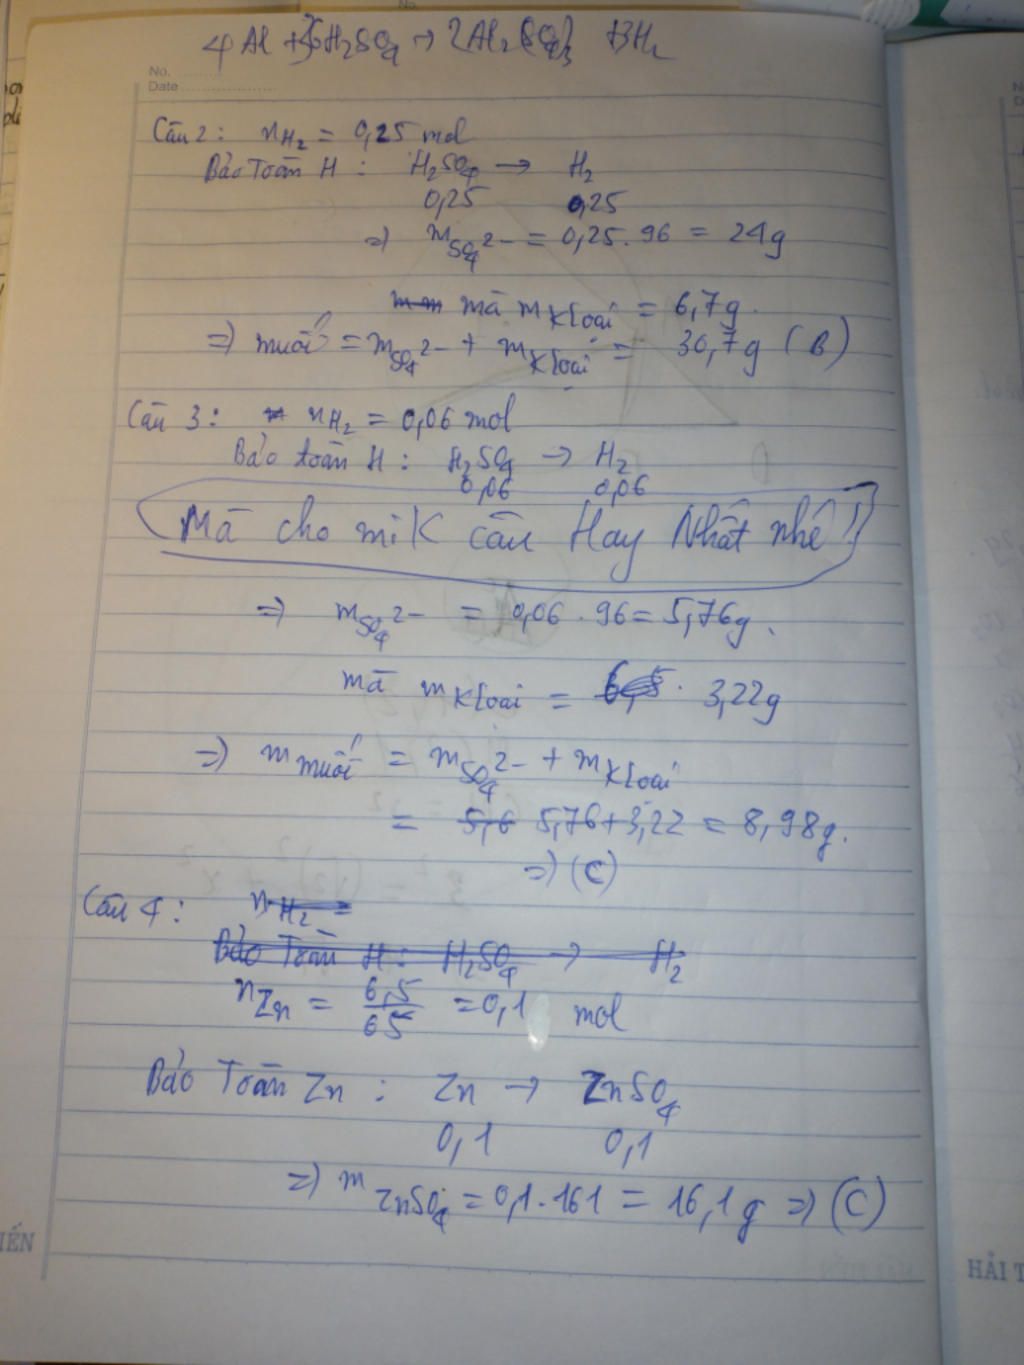 4 Al + 6H₂SO₄ → 2Al₂(SO₄)₃ + 3H₂
No.
Date
Câu 2: nH₂ = 0,25 mol
Bảo Toàn H : H₂SO₄ → H₂
0,25 0,25
=> mSO₄²⁻ = 0,25.96 = 24g
mà mKloại = 6,7g.
=> muối = mSO₄²⁻ + mKloại = 30,7g (B)
Câu 3: nH₂ = 0,06 mol
Bảo toàn H : H₂SO₄ → H₂
0,06 0,06
Mà cho mik câu Hay Nhất nhé!
=> mSO₄²⁻ = 0,06 . 96 = 5,76g.
mà mKloại = 6,5. 3,22g
=> m muối = mSO₄²⁻ + mKloại
= 5,6 5,76+3,22 = 8,98g.
=> (C)
Câu 4: nH₂ =
Bảo Toàn H : H₂SO₄ → H₂
nZn = 6,5/65 = 0,1 mol
Bảo Toàn Zn : Zn → ZnSO₄
0,1 0,1
=> mZnSO₄ = 0,1.161 = 16,1g => (C)
IẾN
HẢI T